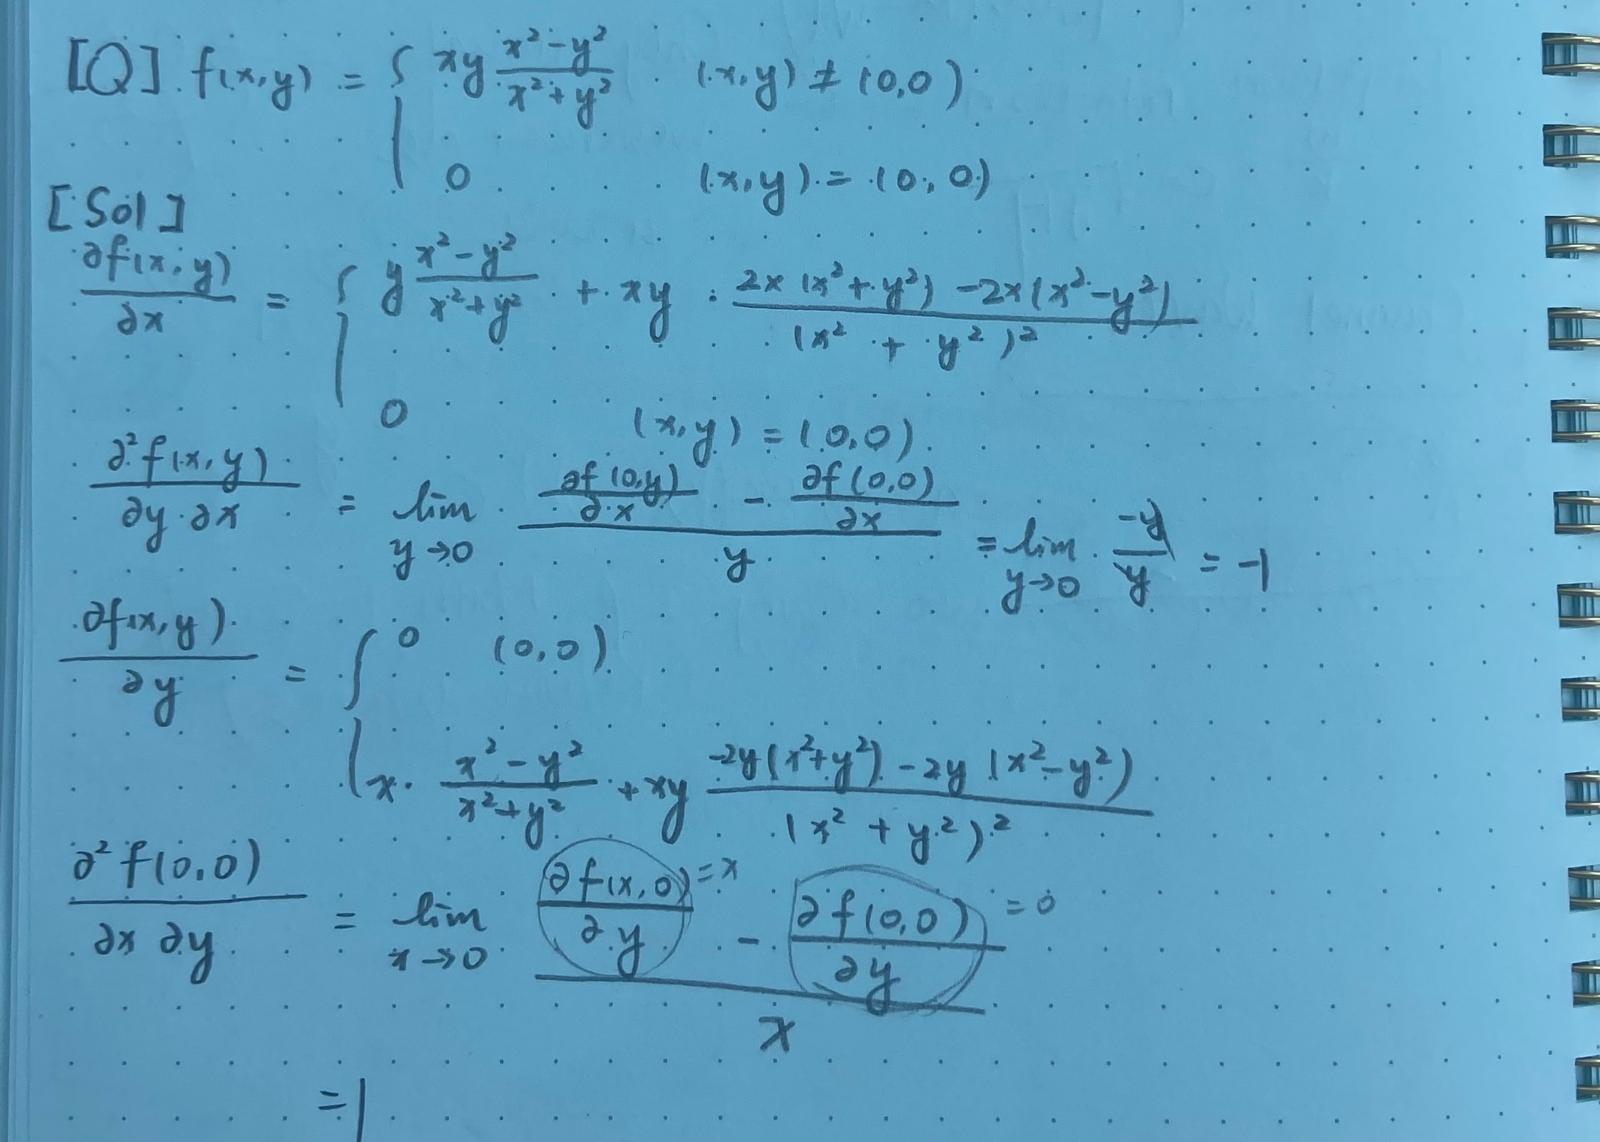 [Q] f(x,y) = { xy (x²-y²)/(x²+y²) (x,y) ≠ (0,0)
0 (x,y) = (0,0)
[Sol]
∂f(x,y)/∂x = { y (x²-y²)/(x²+y²) + xy · (2x(x²+y²) -2x(x²-y²))/(x² + y²)²
0 (x,y) = (0,0)
∂²f(x,y)/∂y ∂x = lim y→0 (∂f(0,y)/∂x - ∂f(0,0)/∂x)/y = lim y→0 -y/y = -1
∂f(x,y)/∂y = { 0 (0,0)
x · (x²-y²)/(x²+y²) + xy (-2y(x²+y²) -2y(x²-y²))/(x² + y²)²
∂²f(0,0)/∂x ∂y = lim x→0 (∂f(x,0)/∂y =x - ∂f(0,0)/∂y =0)/x
=1